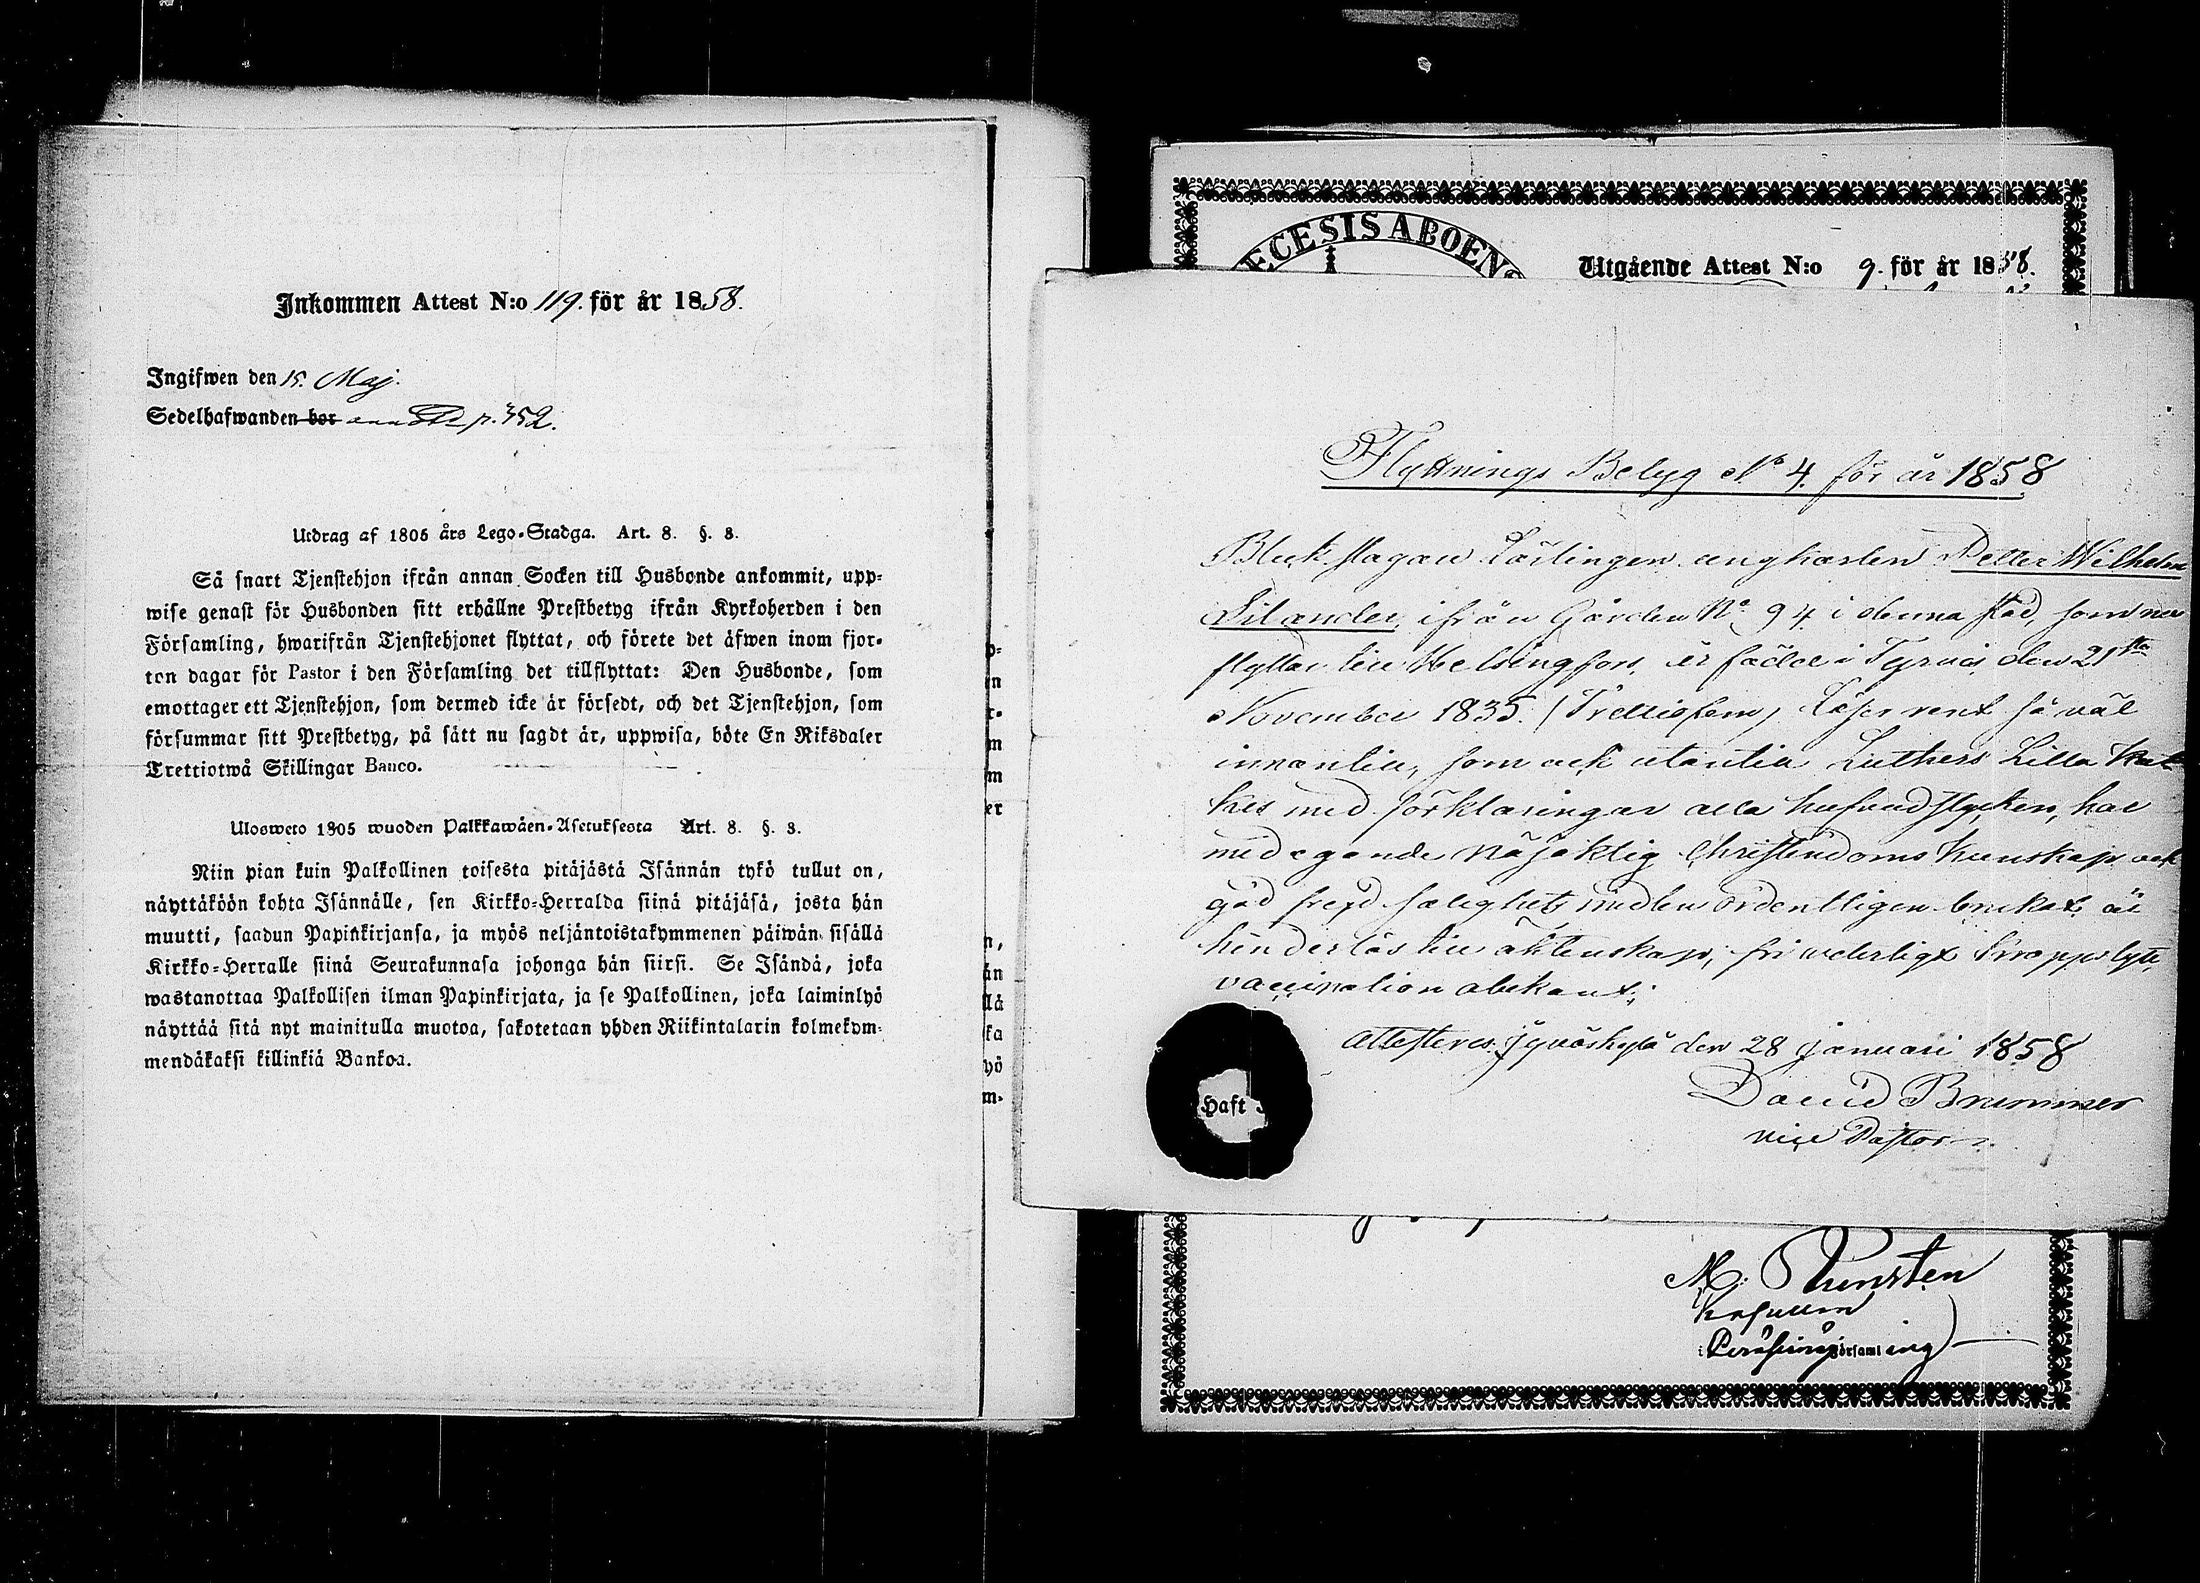 Inkommen Attest N:o 119. för år 1858.
Ingifwen den 15. Maj.
Sedelhafwanden bor p. 352.
Utdrag af 1805 års Lego-Stadga. Art. 8. §. 8.
Så snart Tjenstehjon ifrån annan Socken till Husbonde ankommit, upp-
wise genast för Husbonden sitt erhållne Prestbetyg ifrån Kyrkoherden i den
Församling, hwarifrån Tjenstehjonet flyttat, och förete det äfwen inom fjor-
ton dagar för Pastor i den Församling det tillflyttat: Den Husbonde, som
emottager ett Tjenstehjon, som dermed icke är försedt, och det Tjenstehjon, som
försummar sitt Prestbetyg, på sätt nu sagdt är, uppwisa, böte En Riksdaler
Trettiotwå Skillingar Banco.
Ulosweto 1805 wuoden Palkkawäen-Asetuksesta Art. 8. §. 8.
Niin pian kuin Palkollinen toisesta pitäjästä Isännän tykö tullut on,
näyttäköön kohta Isännälle, sen Kirkko-Herralda siinä pitäjäsä, josta hän
muutti, saadun Papinkirjansa, ja myös neljäntoistakymmenen päiwän sisällä
Kirkko-Herralle siinä Seurakunnasa johonga hän siirsi. Se Isändä, joka
wastanottaa Palkollisen ilman Papinkirjata, ja se Palkollinen, joka laiminlyö
näyttää sitä nyt mainitulla muotoa, sakotetaan yhden Riikintalarin kolmekym-
mendäkaksi killinkiä Bankoa.
p-
en
r-
m
m
er
n,
än
llä
ka
yö
m-
ECESIS ABOENS
Utgående Attest N:o 9. för år 1858.
Flyttnings Betyg No 4. för år 1858
Bleckslagare Lärlingen ungkarlen Petter Wilhelm
Silander, ifrån Gården No 94 i denna stad, som nu
flyttar till Helsingfors, är född i Tyrvis den 21sta
November 1835. (Trettiofem) Läser rent så väl
innantill, som ock utantill Luthers Lilla Kat
kes med förklaringar alla hufvudstycken, har
medegande nöjaktig Christendoms kunskap och
god frejd salighets medlen ordentligen brukat, är
hinderlös till äktenskap, fri wederligt kroppslyte,
vaccination obekant;
Attesteras Jyväskylä den 28 januari 1858
David Brummer
vice Pastor
Haft
M. Tunsten
Kapellan
i Peräseinäjoki Församling